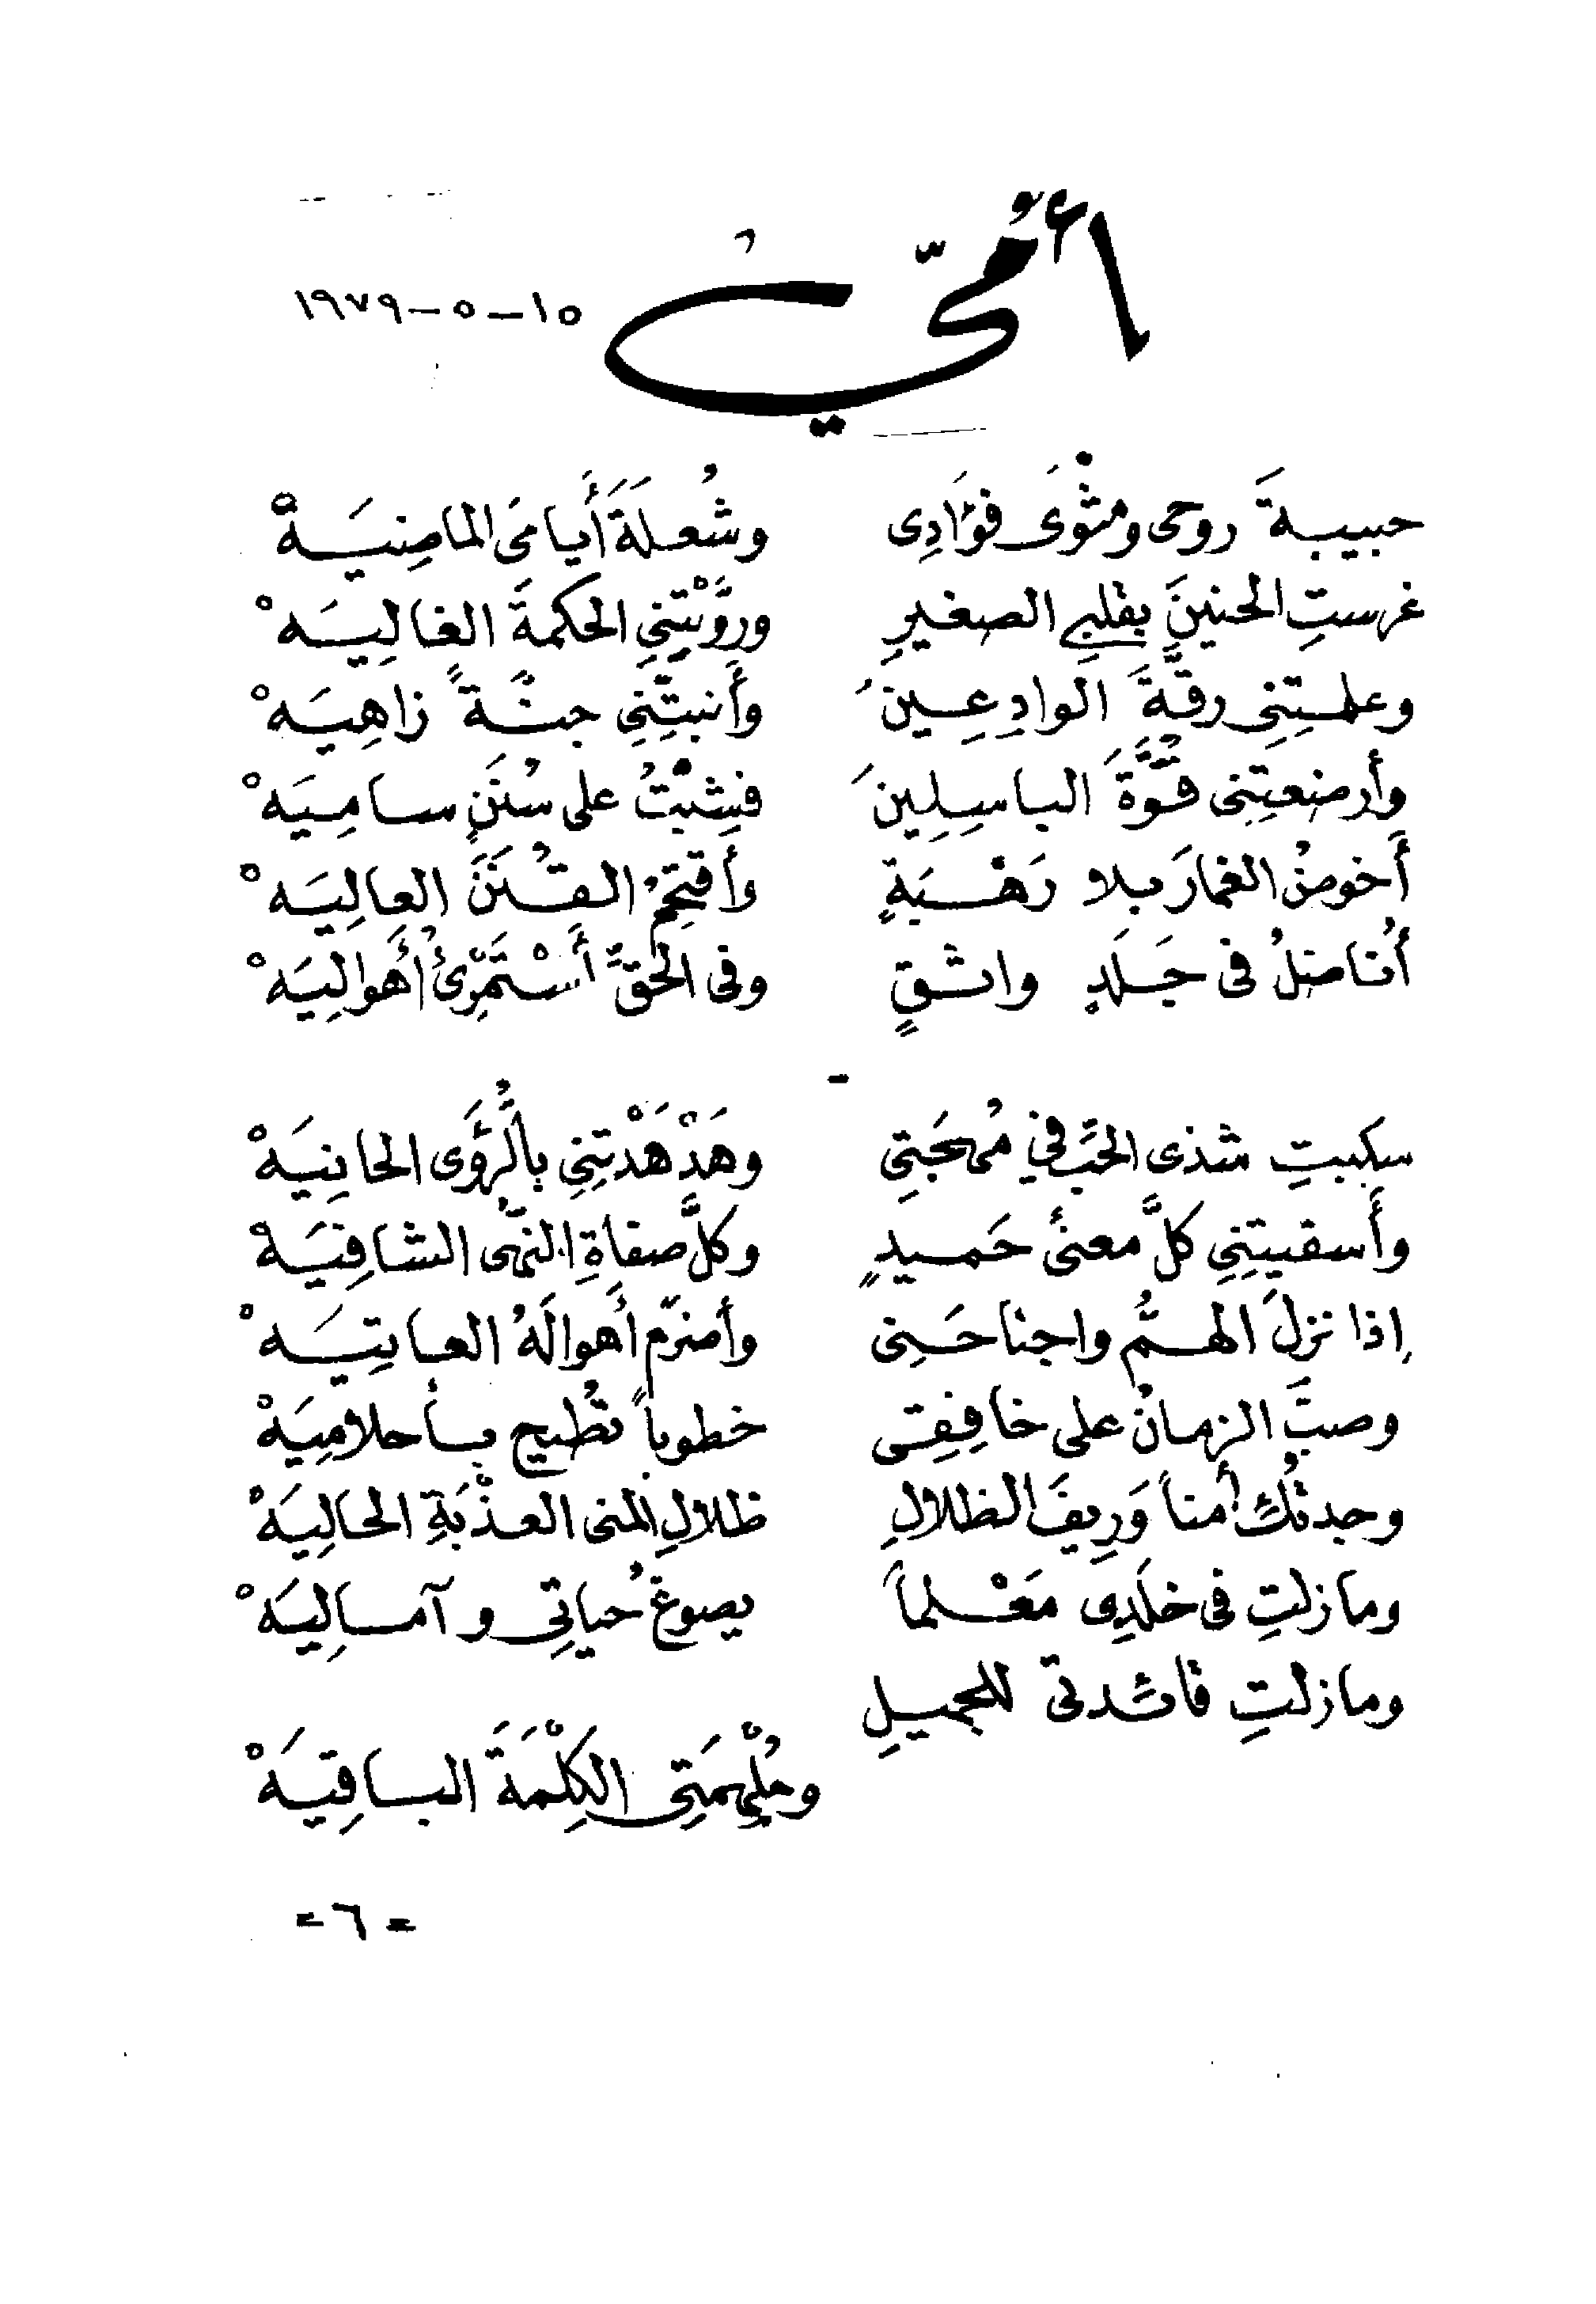 أُمّي
١٥-٥-١٩٧٩
حبيبةَ روحى ومثْوَى فؤَادِى وشُعلَةَ أَيامىَ الماضِيَـهْ
غرستِ الحنينَ بقلبِي الصغيرِ وروَّيْتِنِي الحكمةَ الغالِيَـهْ
وعلمتِنِى رقَّةَ الوادِعِـين وأَنبتِّنِي جنـةً زاهِيَـهْ
وأَرضعتِنِى قـوَّةَ الباسِلِينَ فشِبْتُ على سُنَنٍ سـامِـيَهْ
أَخوضُ الغمارَ بـلا رَهْـبَةٍ وأَقتحِمُ القُـنَنَ العالِيَـهْ
أُناضلُ فى جَـلَدٍ واثـقٍ وفى الحقِّ أَسْـتَمْرِئُ أَهوالِيَـهْ
-
سكبتِ شذى الحبِّ في مُهجَتِي وهَدْهَدْتِنِي بالرُّؤَى الحانِيَـهْ
وأَسقيتِنِي كلَّ معنىً حَمـيدٍ وكلَّ صفاةِ النهى الشافِيَـهْ
إذا نزلَ الهـمُّ واجتاحَـنِى وأضرم أَهوالَهُ العـاتِيَـهْ
وصبَّ الزمانُ على خافِقِـى خطوباً تُطيح بـأَحلامِيَهْ
وجدتُكِ أمناً وَرِيفَ الظلالِ ظلالِ المنى العـذْبَةِ الحالِيَـهْ
وما زلتِ فى خلَدِى مَعْـلماً يصوغُ حياتِي و آمـالِيَـهْ
وما زلتِ قائـدتى للجميـلِ
ومُلْهِمَتِى الكِلْمَةَ البـاقِيَـهْ
-٦-